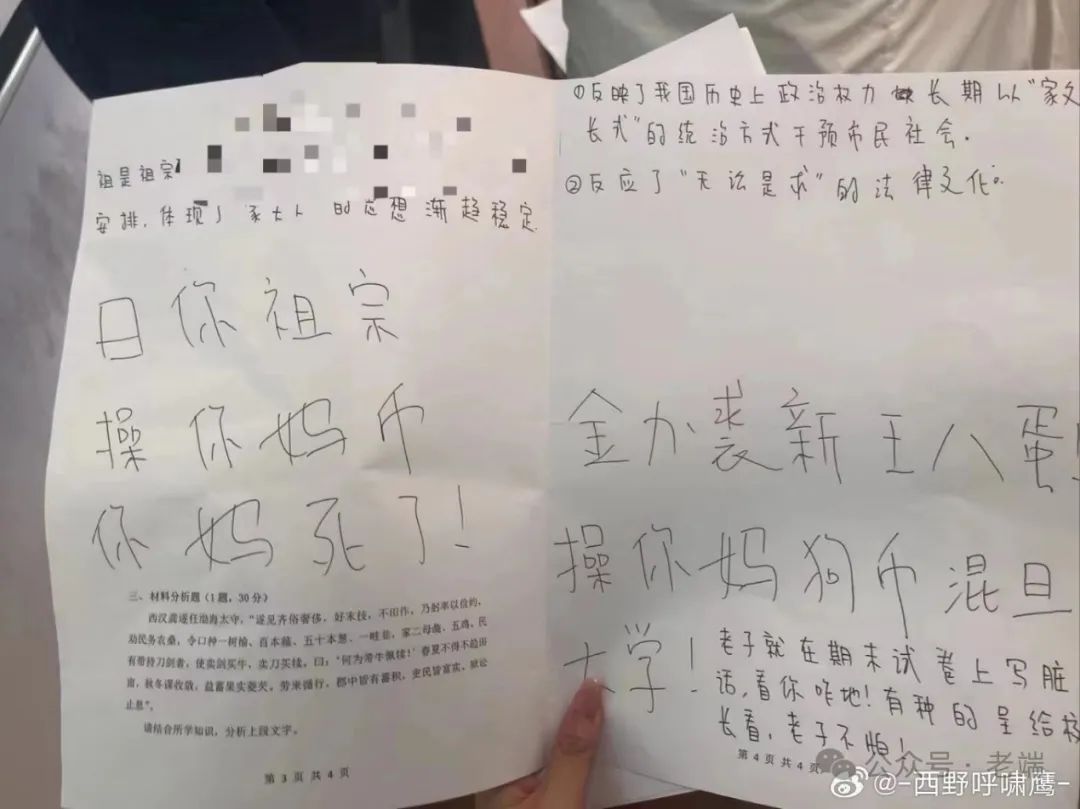 祖是祖宗
安排,体现了 的思想渐趋稳定.
日你祖宗
操你妈币
你妈死了!
三、材料分析题(1题,30分)
西汉龚遂任渤海太守,“遂见齐俗奢侈,好末技,不田作,乃躬率以俭约,
劝民务农桑,令口种一树榆、百本薤、五十本葱、一畦韭,家二母彘、五鸡。民
有带持刀剑者,使卖剑买牛,卖刀买犊。曰:‘何为带牛佩犊!’春夏不得不趋田
亩,秋冬课收敛,益蓄果实菱芡。劳来循行,郡中皆有蓄积,吏民皆富实。狱讼
止息”。
请结合所学知识,分析上段文字。
第 3 页 共 4 页
①反映了我国历史上政治权力 长期以“家父
长式”的统治方式干预市民社会.
②反应了“无讼是求”的法律文化。
金力裘新王八蛋!
操你妈狗币混旦
大学!
老子就在期末试卷上写脏
话,看你咋地!有种的呈给校
长看,老子不怕!
第 4 页 共 4 页
公众号·老端
@-西野呼啸鹰-